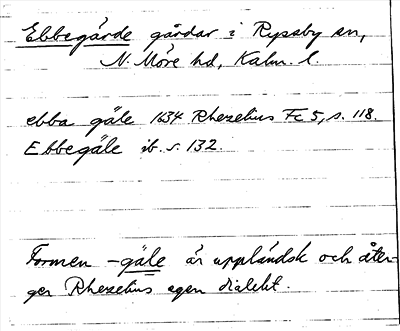 Ebbegärde gårdar i Ryssby sn,
N. Möre hd, Kalm. l.
ebba gäle 1634 Rhezelius Fc 5, s. 118.
Ebbegäle ib. s. 132.
Formen -gäle är uppländsk och åter-
ger Rhezelius egen dialekt.